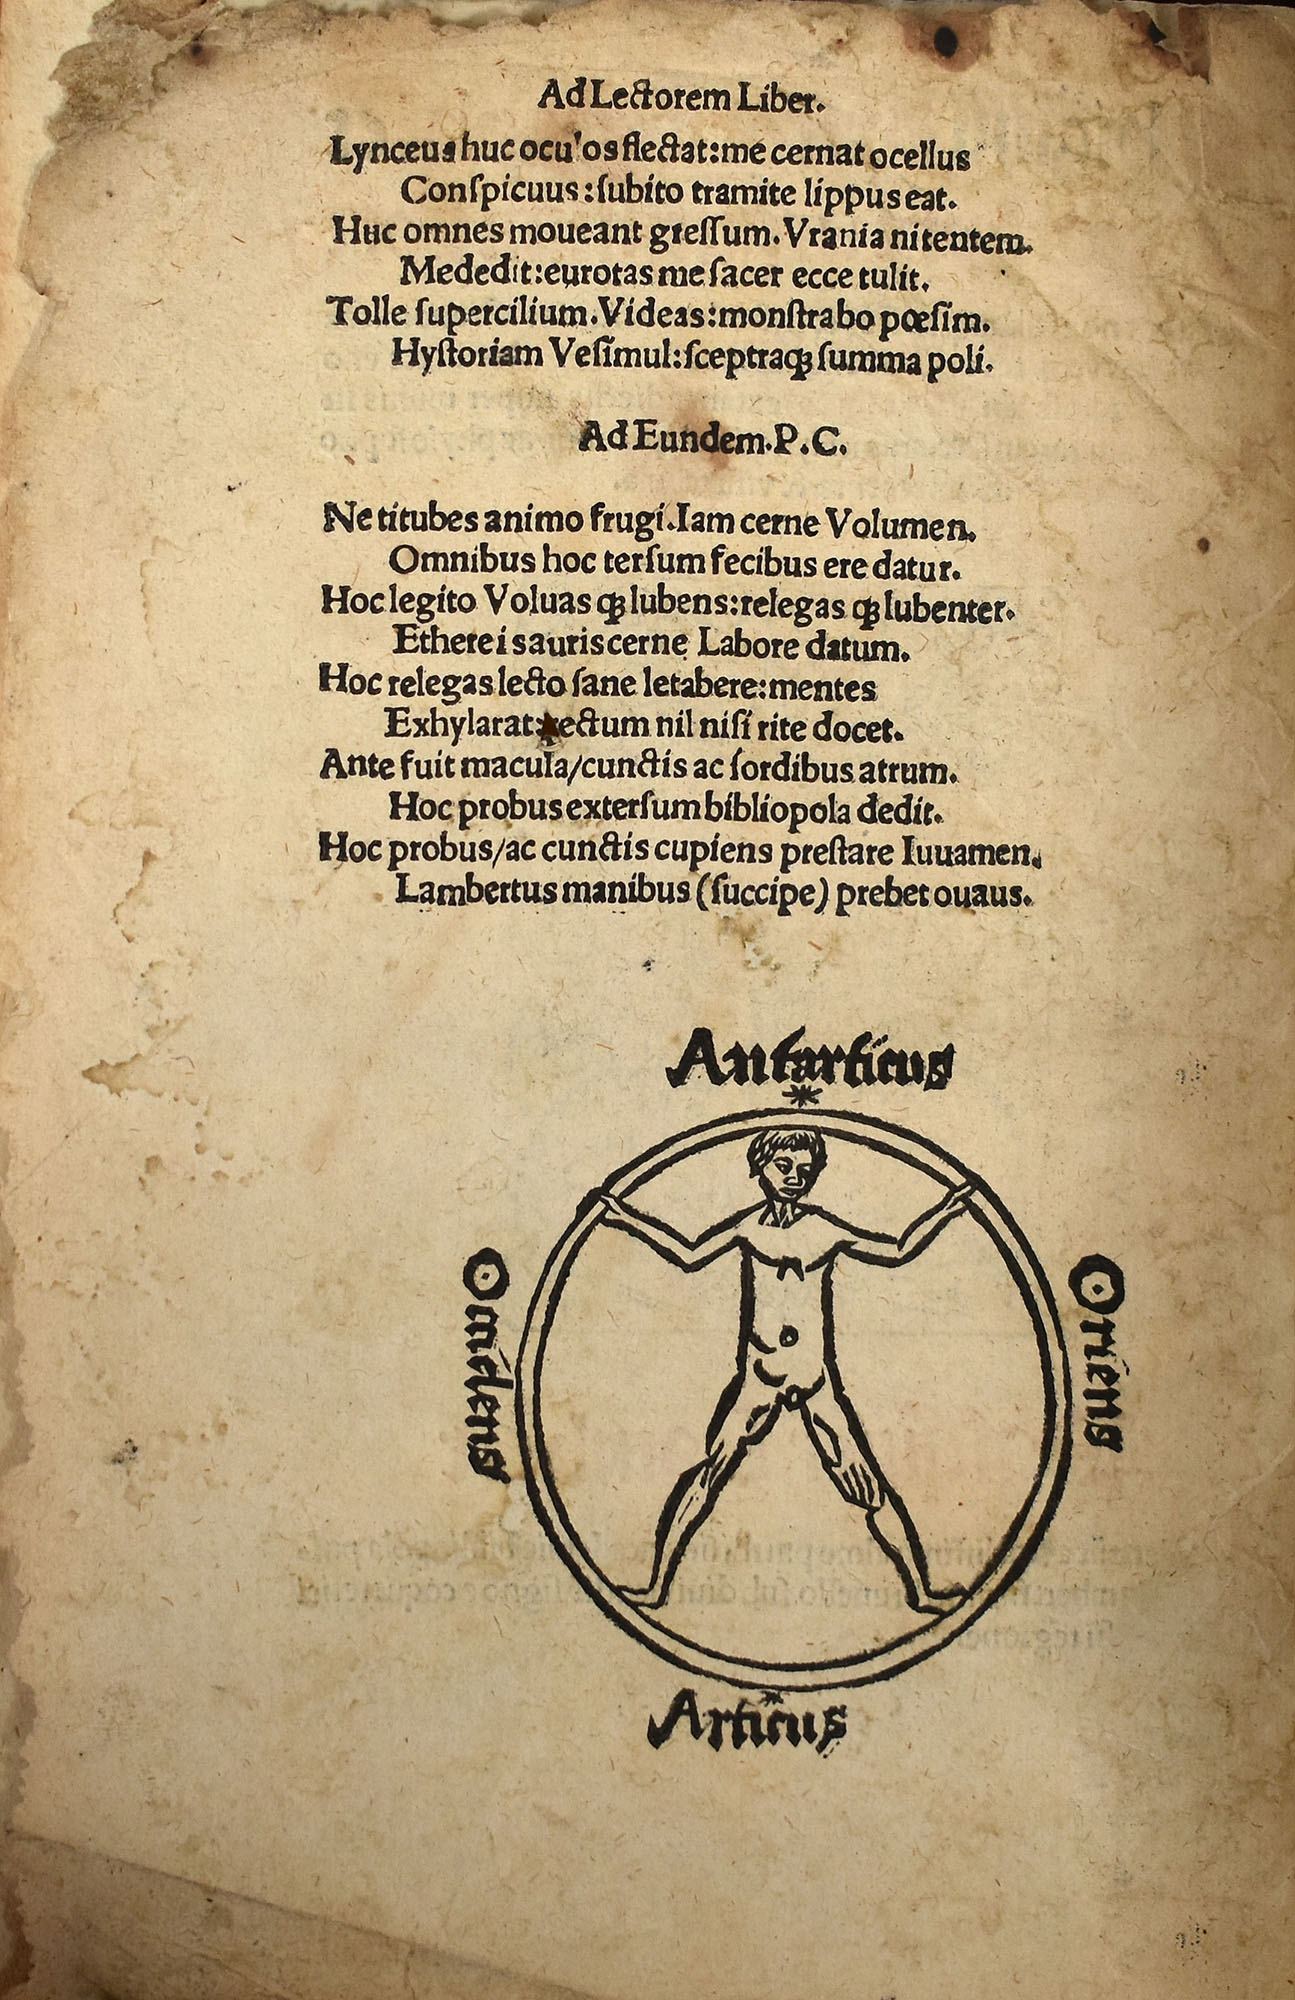 Ad Lectorem Liber.
Lynceus huc ocu'os flectat:me cernat ocellus
Conſpicuus:ſubito tramite lippus eat.
Huc omnes moueant greſſum.Vrania nitentem.
Me dedit:eurotas me ſacer ecce tulit.
Tolle ſupercilium.Videas:monſtrabo pœſim.
Hyſtoriam Veſimul:ſceptraqꝫ ſumma poli.
Ad Eundem.P.C.
Ne titubes animo frugi.Iam cerne Volumen.
Omnibus hoc terſum fecibus ere datur.
Hoc legito Voluas qꝫ lubens:relegas qꝫ lubenter.
Etherei sauris cerne Labore datum.
Hoc relegas lecto ſane letabere:mentes
Exhylarat:rectum nil niſi rite docet.
Ante fuit macula/cunctis ac ſordibus atrum.
Hoc probus exterſum bibliopola dedit.
Hoc probus/ac cunctis cupiens preſtare Iuuamen.
Lambertus manibus (ſuccipe) prebet ouaus.
Antarticus
Oriens
Articus